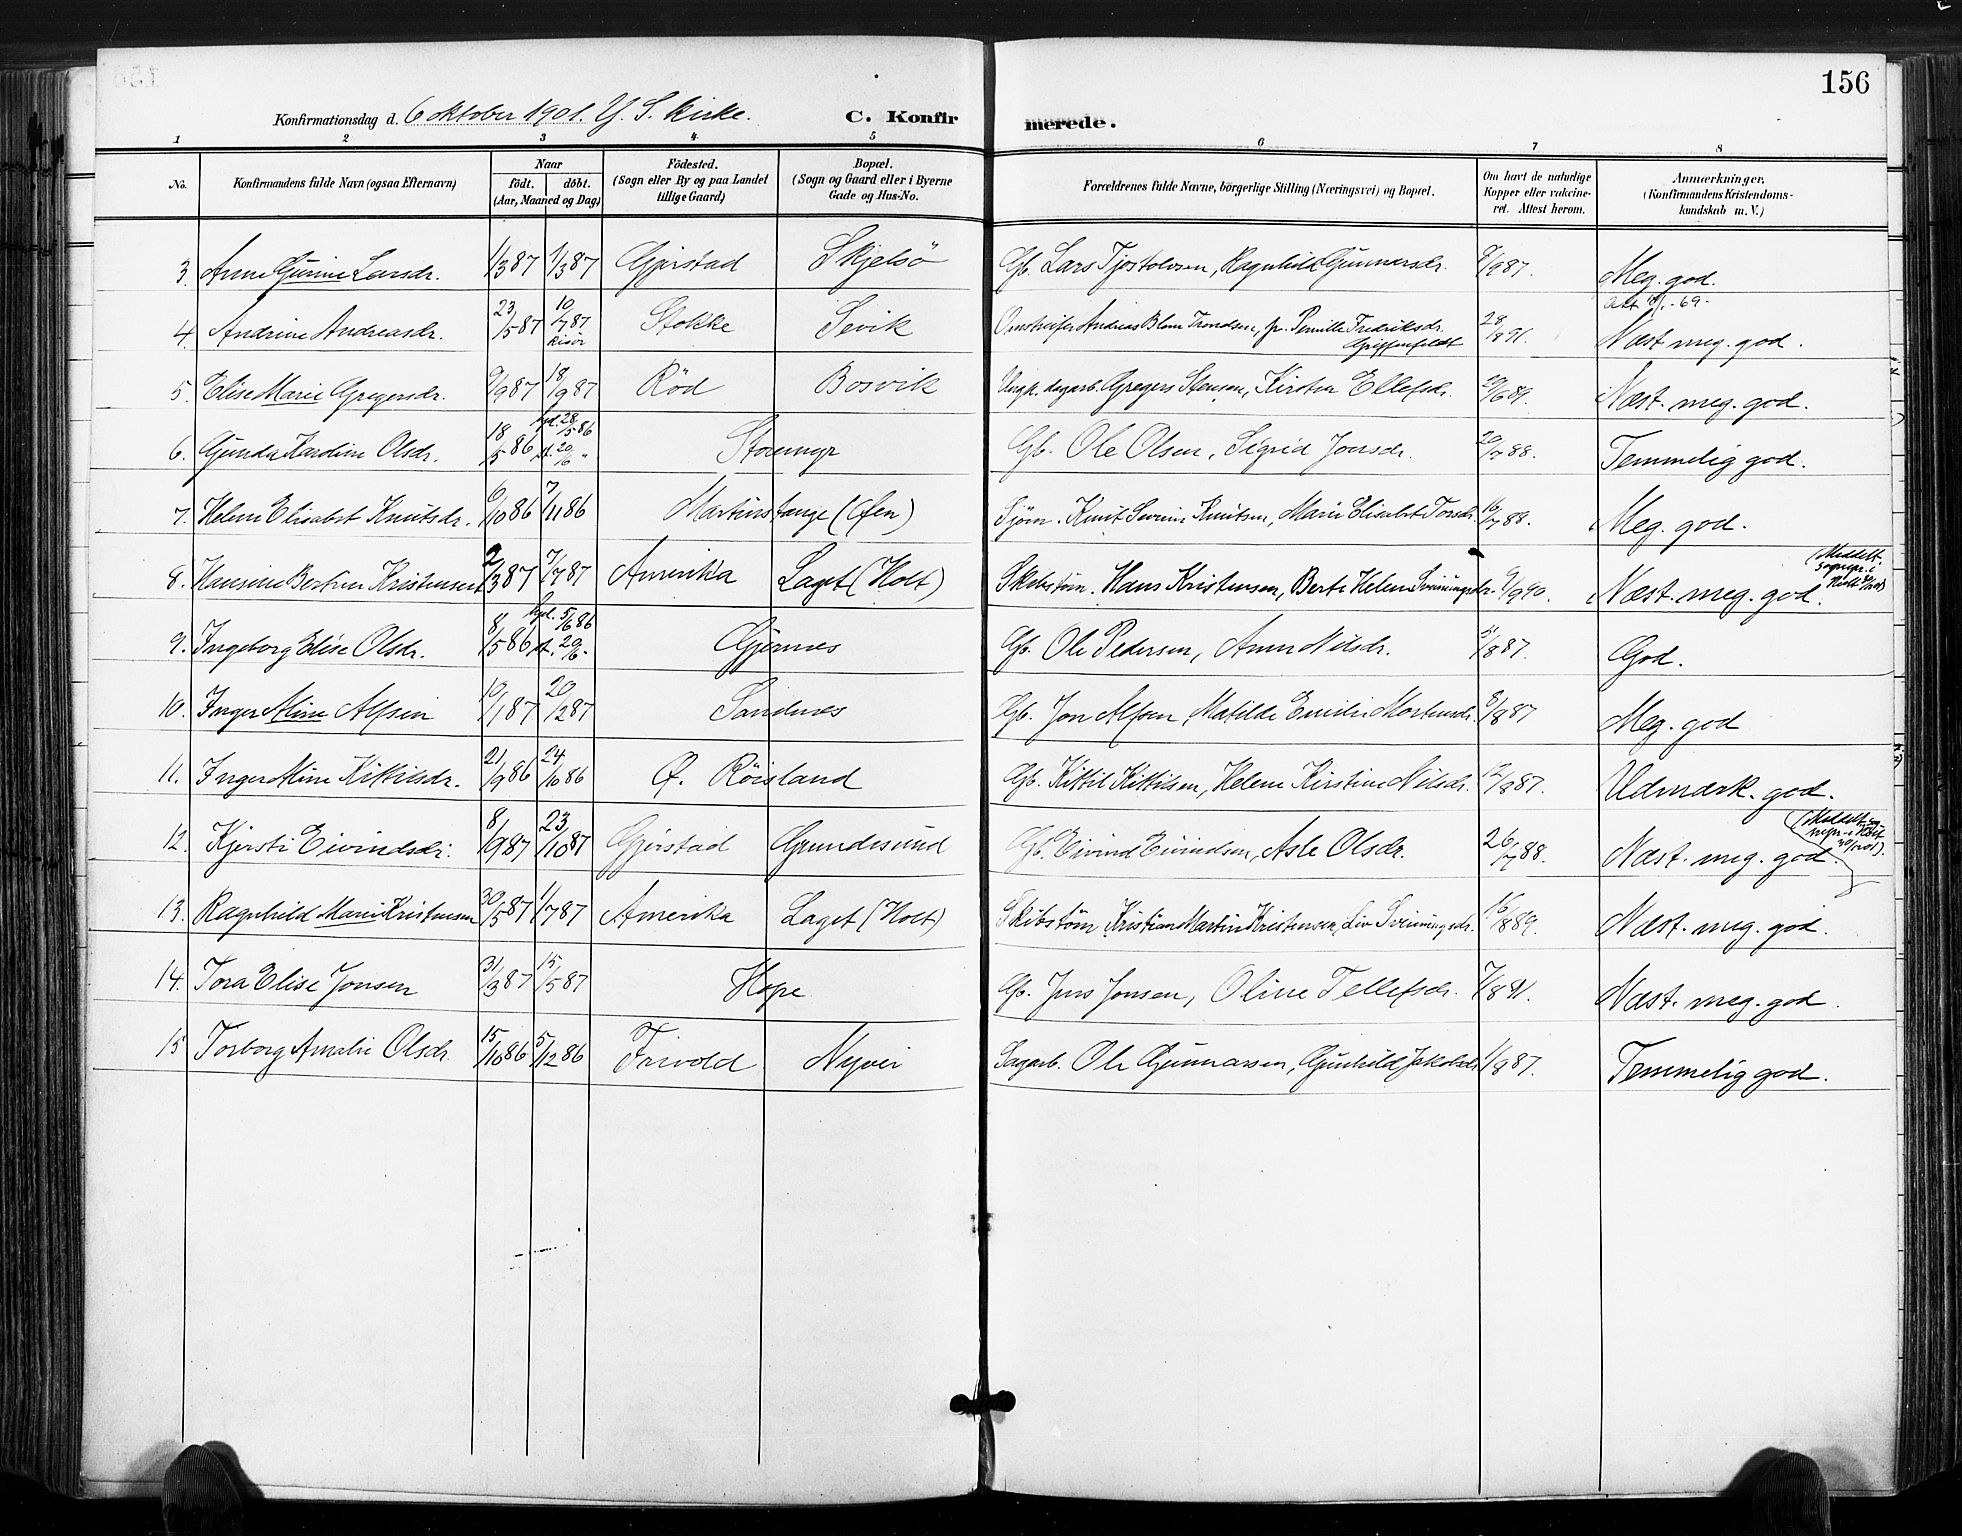 156
Konfirmationsdag d. 6 oktober 1901. Y. S. kirke. C. Konfir merede.
1 2 3 4 5 6 7 8
No. Konfirmandens fulde Navn (ogsaa Efternavn) Naar født. døbt. (Aar, Maaned og Dag) Födested. (Sogn eller By og paa Landet tillige Gaard) Bopæl. (Sogn og Gaard eller i Byerne Gade og Hus-No. Forældrenes fulde Navne, börgerlige Stilling (Næringsvei) og Bopæl. Om havt de naturlige Kopper eller vakcineret. Attest herom. Anmærkninger. (Konfirmandens Kristendomskundskab m. V.)
3. Anne Gurine Larsdr. 1/3 87 1/3 87 Gjerstad Skjelsö Gb. Lars Tjostolvsen, Ragnhild Gunnarsdr. /9 87. Meg. god.
4. Andrine Andreasdr. 23/5 87 10/7 87 Risör Stokke Sevik Omstreifer Andreas Blom Trondsen, Pernille Fredriksdr. Griffenfeldt 28/8 91. Næst. meg. god.
5. Elise Marie Gregersdr. 9/9 87 18/9 87 Röd Bosvik dagarb. Gregers Stensen, Kirsten Ellefsdr. Næst. meg. god.
6. Gunda Karoline Olsdr. 18/5 86 hjd. 28/5 86 st. 20/6 " Storemyr Gb. Ole Olsen, Sigrid Jonsdr. 20/7 88. Temmelig god.
7. Helene Elisabet Knutsdr. 6/10 86 7/11 86 Martinstange (Öen) Sjöm. Knut Severin Knutsen, Marie Elisabet Torsdr. 16/7 88. Meg. god.
8. Hansine Bertine Kristensen 2/3 87 7/7 87 Amerika Laget (Holt) Skibstöm. Hans Kristensen, Berte Helene Sveinungsdr. 9/9 90. Næst. meg. god. (Meddelt sognepr. i Holt
9. Ingeborg Elise Olsdr. 8/5 86 hjd. 5/6 86 st. 20/6. Gjernes Gb. Ole Pedersen, Anne Nilsdr. /8 87. God.
10. Inger Aline Alfsen 10/1 87 20/2 87 Sandnes Gb. Jon Alfsen, Matilde Emilie Mortensdr. 8/8 87 Meg. god
11. Inger Aline Kittilsdr. 21/9 86 24/10 86 Ö. Röisland Gb. Kittil Kittilsen, Helene Kirstine Nilsdr. 12/8 87. Udmærk. god.
12. Kjersti Eivindsdr. 8/9 87 23/10 87 Gjerstad Grundesund Gb. Eivind Eivindsen, Asle Olsdr. 26/7 88. Næst. meg. god. (Meddelt i Holt
13. Ragnhild Marie Kristensen 30/5 87 1/7 87 Amerika Laget (Holt) Skibstöm Kristian Martin Kristensen, Liv Sveinungsdr. 16/8 89. Næst. meg. god.
14. Tora Elise Jonsen 31/3 87 15/5 87 Hope Gb. Jens Jonsen, Oline Tellefsdr. 7/8 91. Næst. meg. god.
15 Torborg Amalie Olsdr. 15/10 86 5/12 86 Frivold Nyvei Sagarb. Ole Gunnarsen, Gunhild Jakobsdr 1/9 87. Temmelig god.